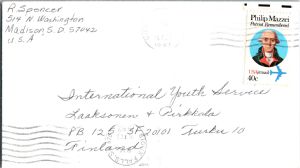 R. Spencer
514 N Washington
Madison, S.D. 57042
U.S.A
Philip Mazzei
Patriot Remembered
USAirmail
40c
International Youth Service
Laaksonen & Pirkkola
PB 125 SF 20101 Turku 10
Finland